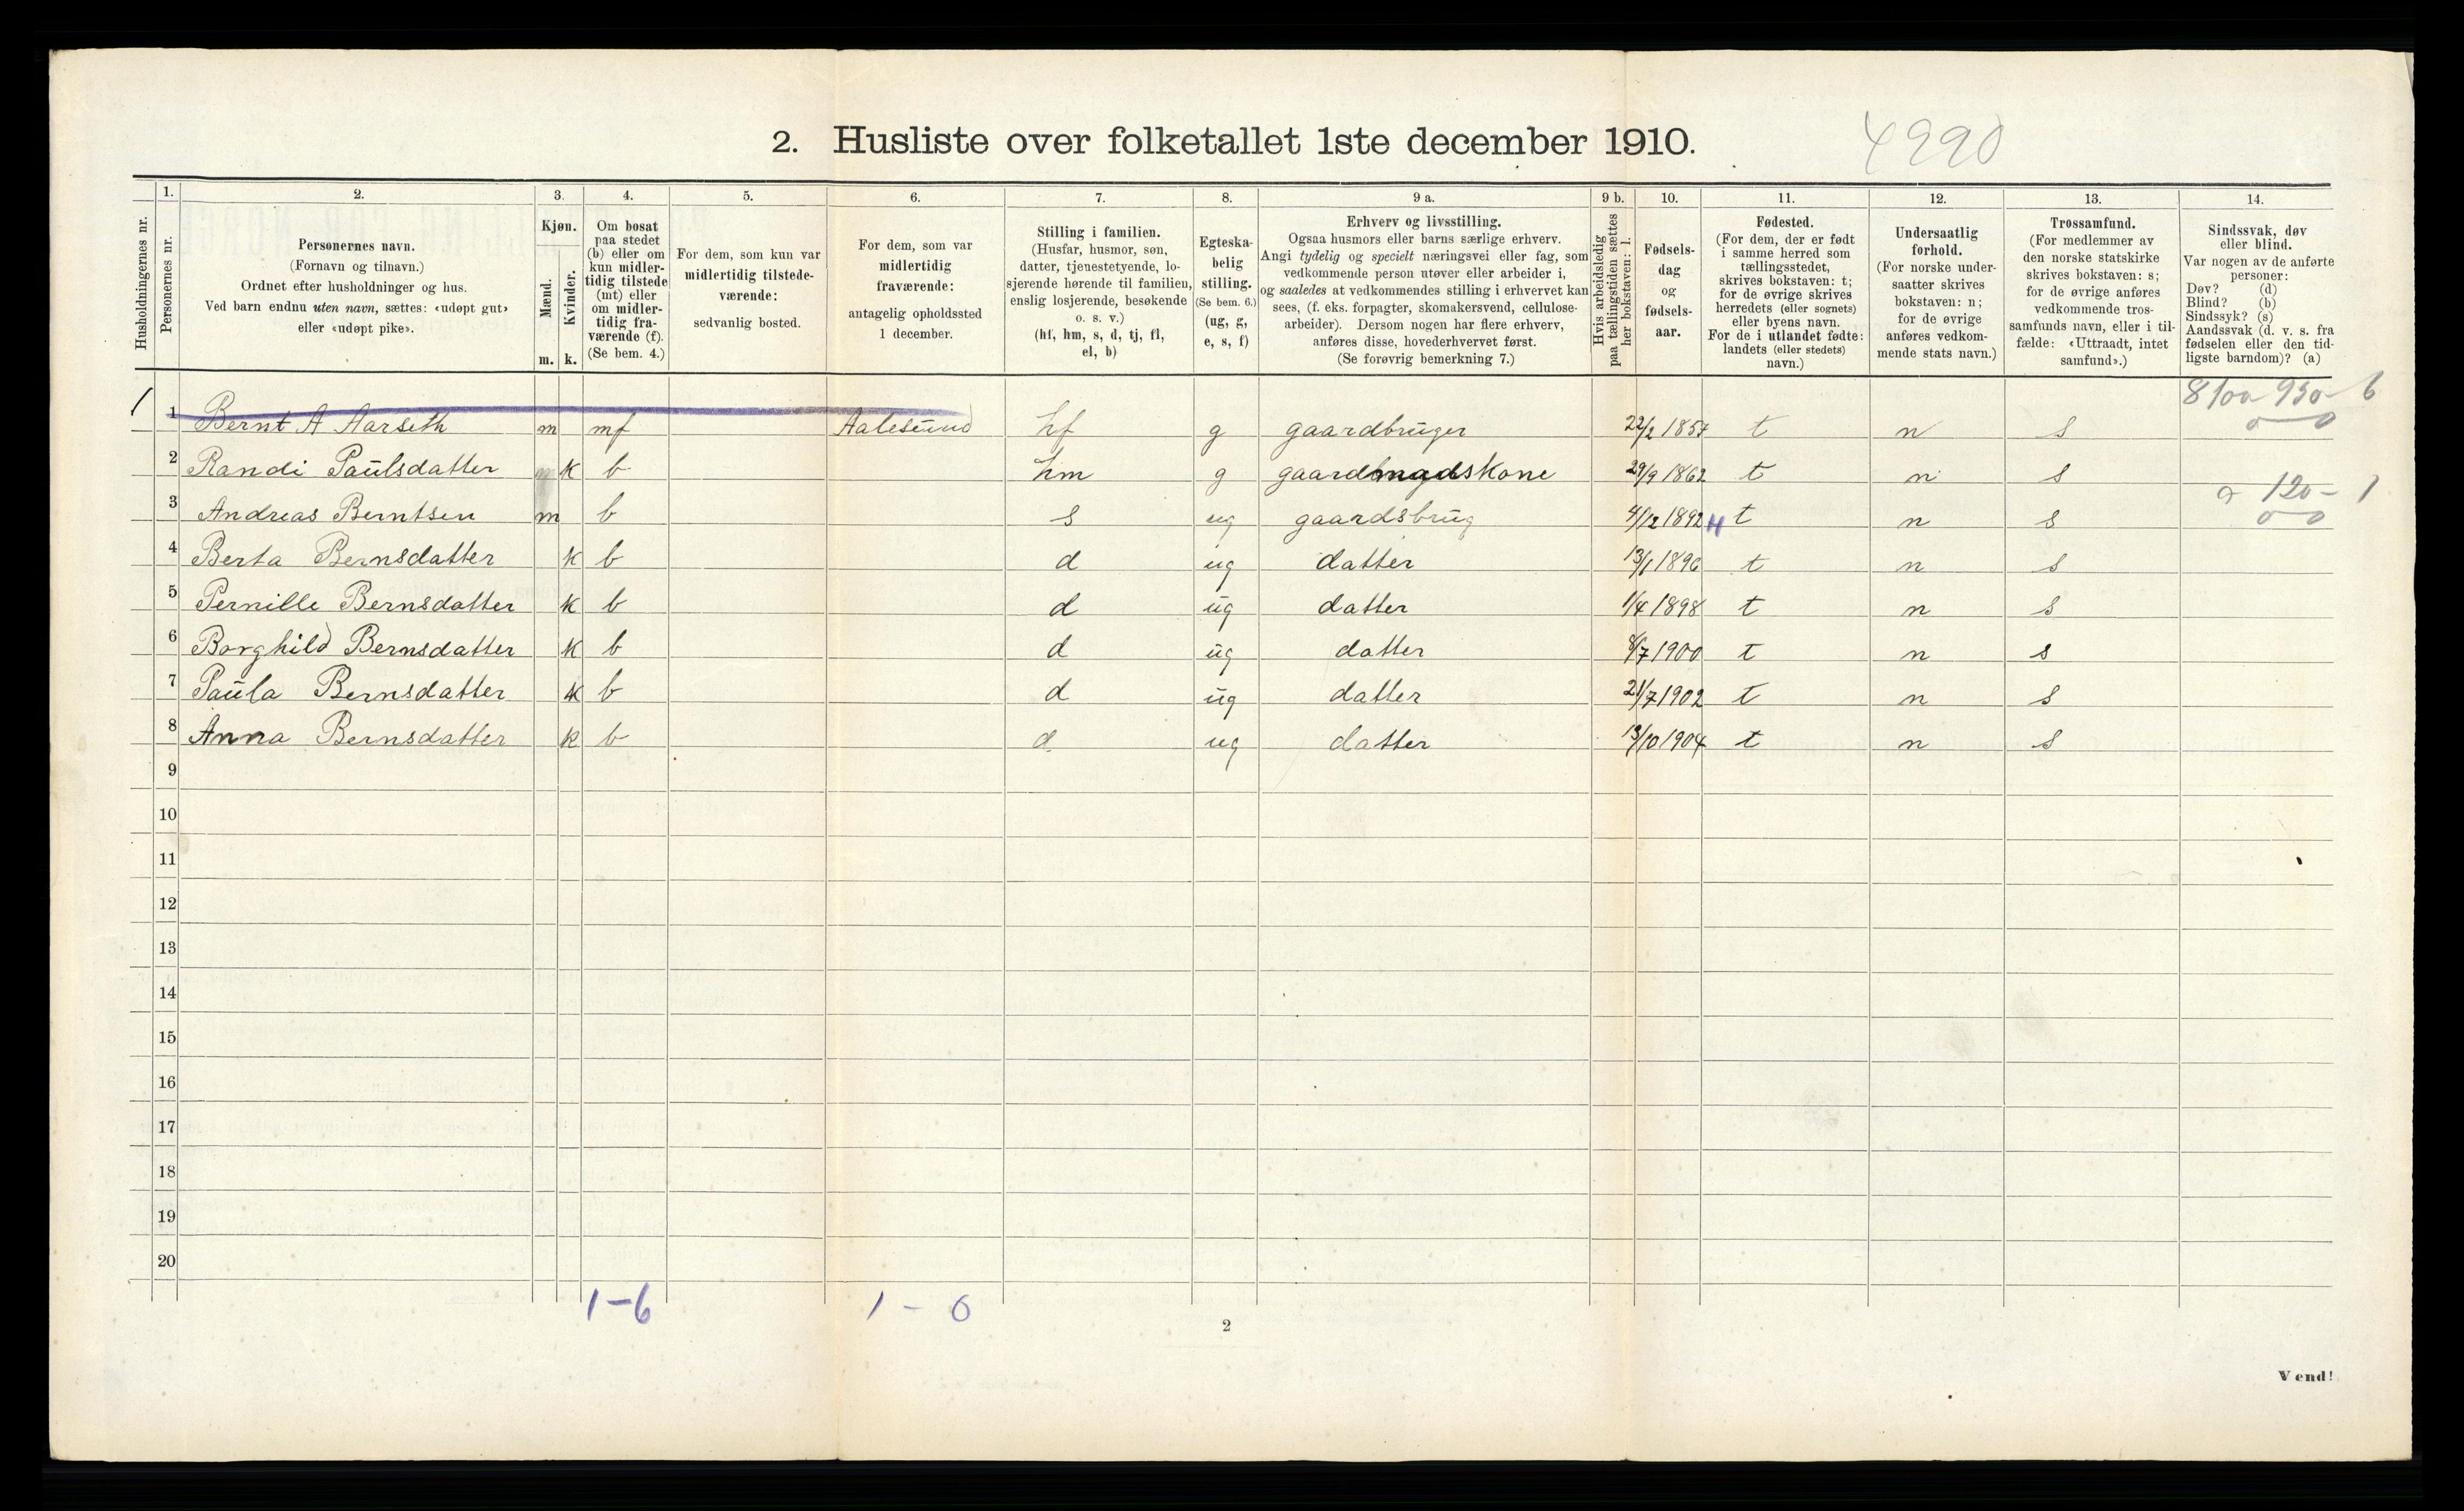 2. Husliste over folketallet 1ste december 1910.
4990
1. 2. 3. 4. 5. 6. 7. 8. 9 a. 9 b. 10. 11. 12. 13. 14.
Husholdningernes nr.
Personernes nr.
Personernes navn.
(Fornavn og tilnavn.)
Ordnet efter husholdninger og hus.
Ved barn endnu uten navn, sættes: «udøpt gut»
eller «udøpt pike».
Kjøn.
Mænd.
Kvinder.
m. k.
Om bosat
paa stedet
(b) eller om
kun midler-
tidig tilstede
(mt) eller
om midler-
tidig fra-
værende (f).
(Se bem. 4.)
For dem, som kun var
midlertidig tilstede-
værende:
sedvanlig bosted.
For dem, som var
midlertidig
fraværende:
antagelig opholdssted
1 december.
Stilling i familien.
(Husfar, husmor, søn,
datter, tjenestetyende, lo-
sjerende hørende til familien,
enslig losjerende, besøkende
o. s. v.)
(hf, hm, s, d, tj, fl,
el, b)
Egteska-
belig
stilling.
(Se bem. 6.)
(ug, g,
e, s, f)
Erhverv og livsstilling.
Ogsaa husmors eller barns særlige erhverv.
Angi tydelig og specielt næringsvei eller fag, som
vedkommende person utøver eller arbeider i,
og saaledes at vedkommendes stilling i erhvervet kan
sees, (f. eks. forpagter, skomakersvend, cellulose-
arbeider). Dersom nogen har flere erhverv,
anføres disse, hovederhvervet først.
(Se forøvrig bemerkning 7.)
Hvis arbeidsledig
paa tællingstiden sættes
her bokstaven: l.
Fødsels-
dag
og
fødsels-
aar.
Fødested.
(For dem, der er født
i samme herred som
tællingsstedet,
skrives bokstaven: t;
for de øvrige skrives
herredets (eller sognets)
eller byens navn.
For de i utlandet fødte:
landets (eller stedets)
navn.)
Undersaatlig
forhold.
(For norske under-
saatter skrives
bokstaven: n;
for de øvrige
anføres vedkom-
mende stats navn.)
Trossamfund.
(For medlemmer av
den norske statskirke
skrives bokstaven: s;
for de øvrige anføres
vedkommende tros-
samfunds navn, eller i til-
fælde: «Uttraadt, intet
samfund».)
Sindssvak, døv
eller blind.
Var nogen av de anførte
personer:
Døv? (d)
Blind? (b)
Sindssyk? (s)
Aandssvak (d. v. s. fra
fødselen eller den tid-
ligste barndom)? (a)
1 1 Bernt A Aarseth m mf Aalesund hf g gaardbruger 22/2 1857 t n s
2 Randi Paulsdatter k b hm g gaardmadskone 29/9 1862 t n s
3 Andreas Berntsen m b s ug gaardsbrug 4/12 1892 H t n s 120 - 1
4 Berta Bernsdatter k b d ug datter 13/1 1896 t n s
5 Pernille Bernsdatter k b d ug datter 1/4 1898 t n s
6 Borghild Bernsdatter k b d ug datter 8/7 1900 t n s
7 Paula Bernsdatter k b d ug datter 21/7 1902 t n s
8 Anna Bernsdatter k b d ug datter 13/10 1904 t n s
9
10
11
12
13
14
15
16
17
18
19
20
1-6 1 - 0
2
Vend!